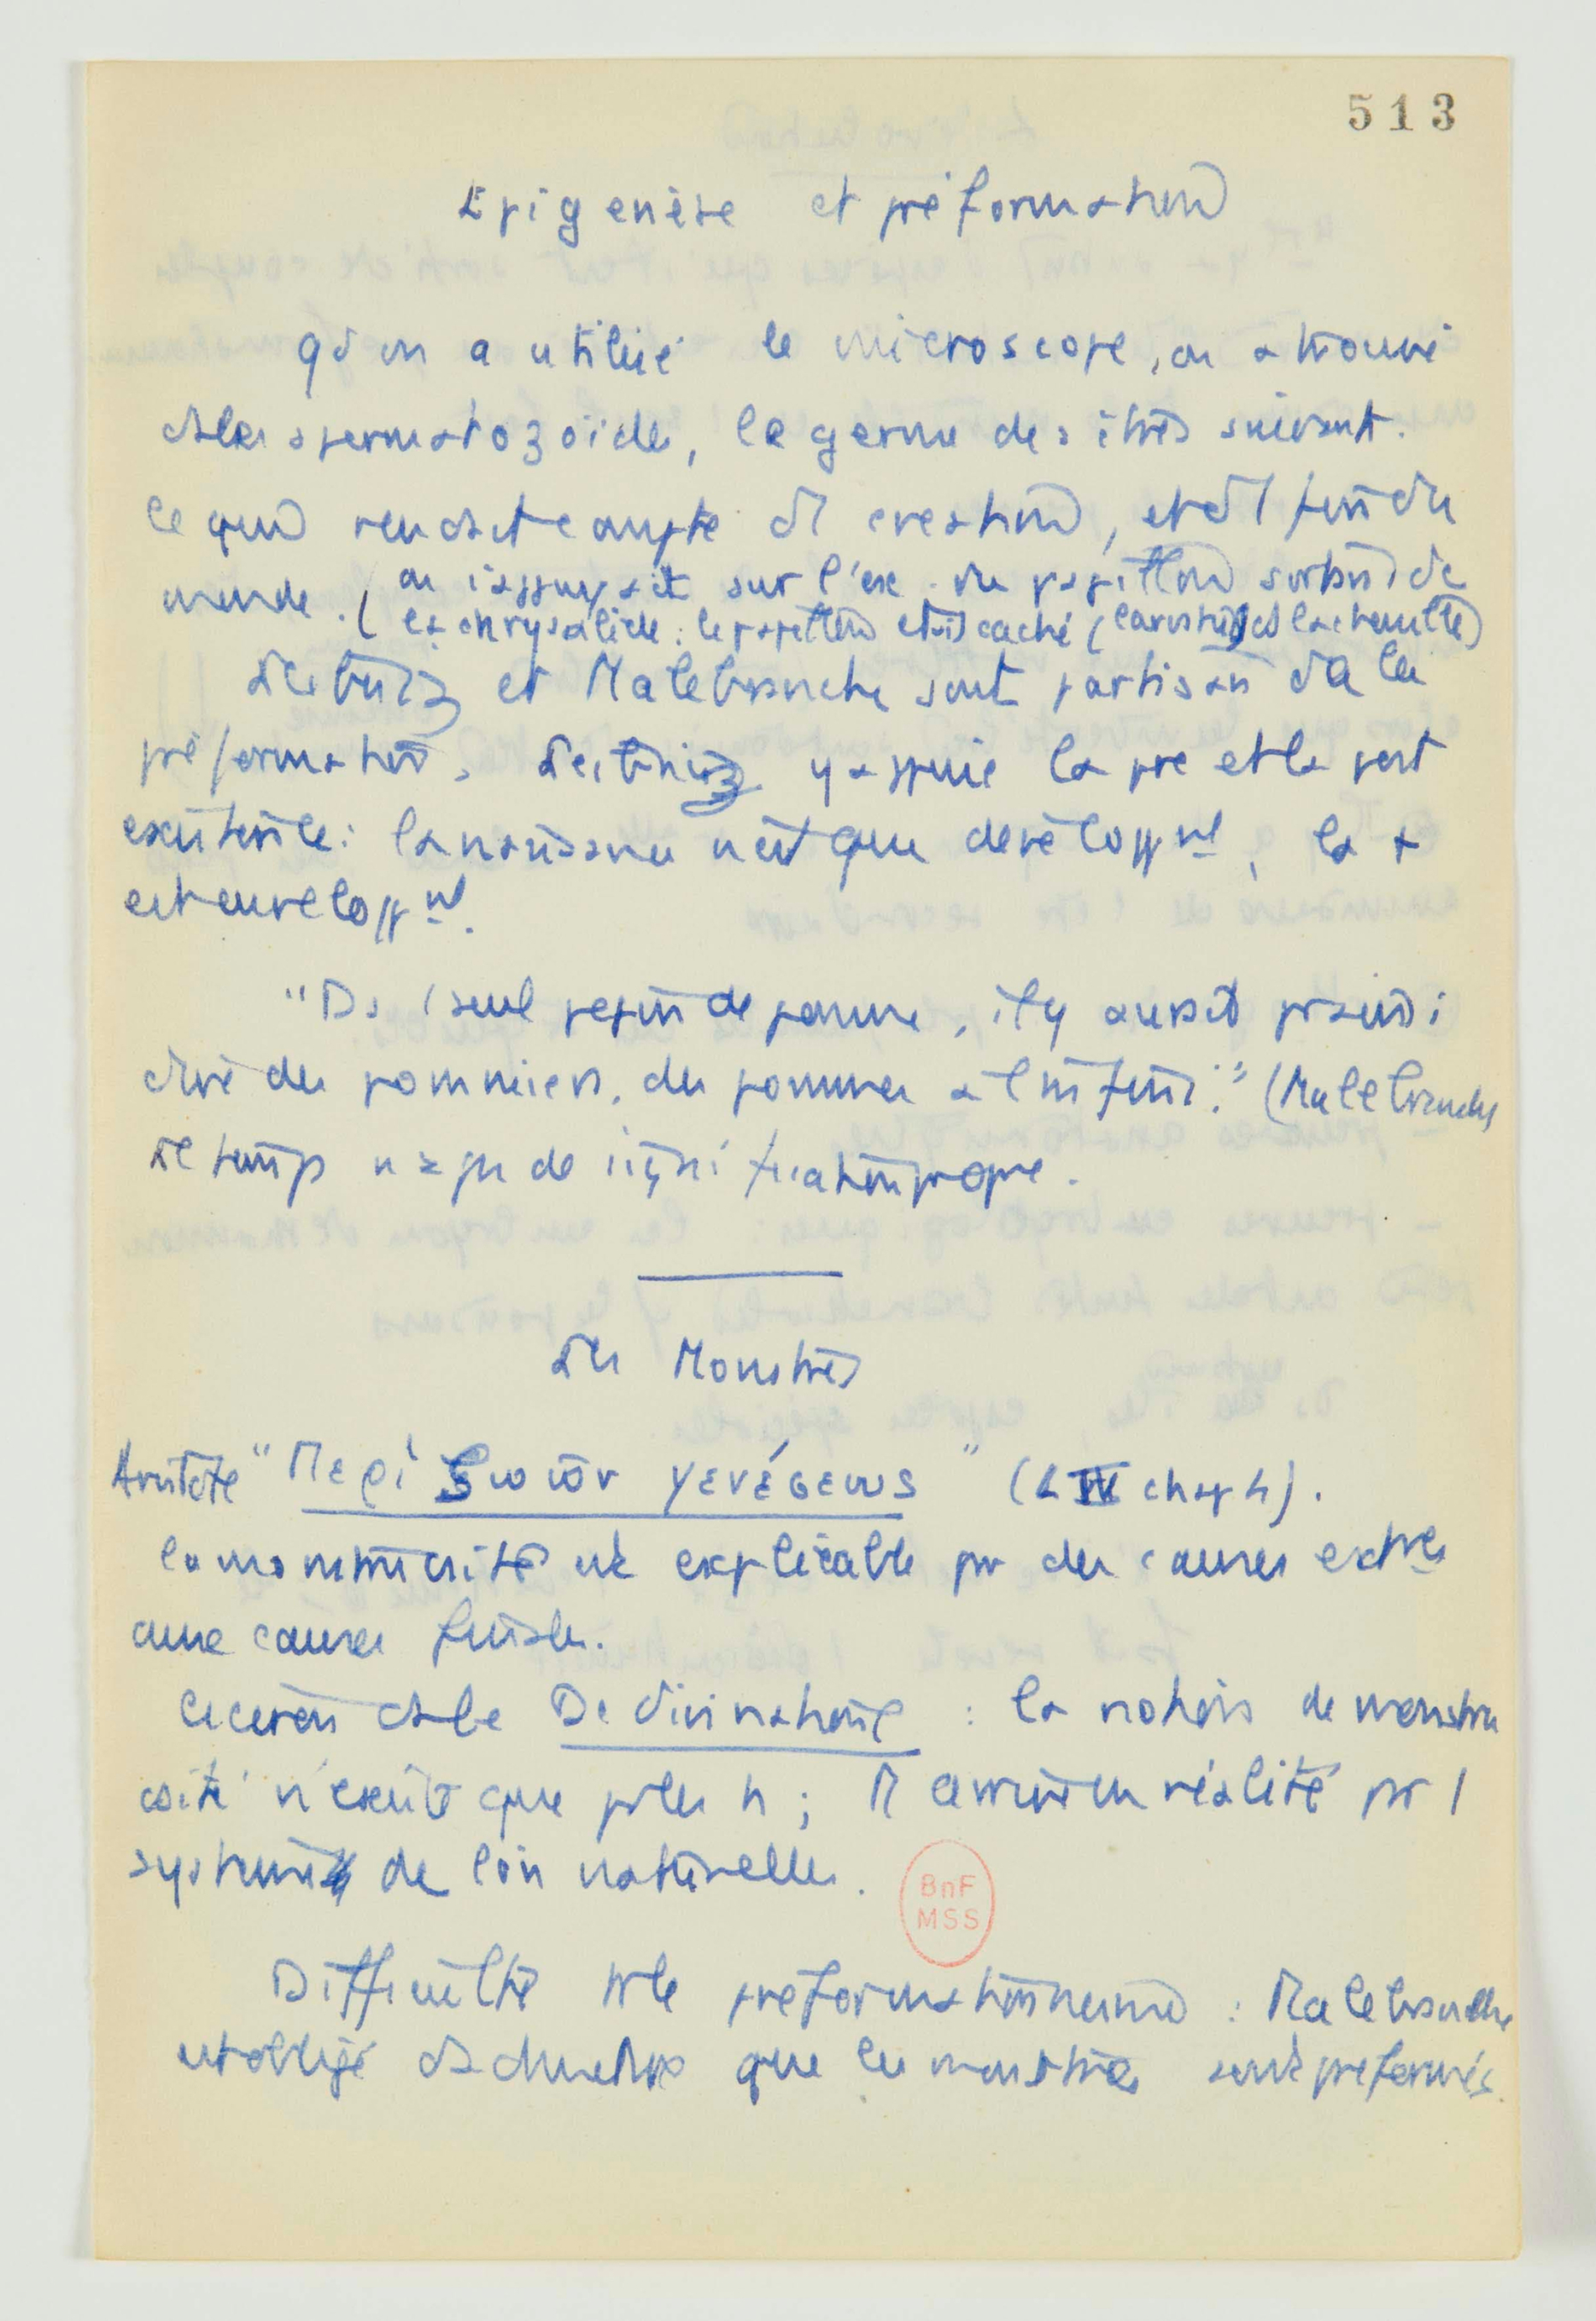 513
Epigenèse et préformation
qd on a utilisé le microscope, on a trouvé
ds les spermatozoïdes, le germe des êtres suivant.
Ce qui rendait compte dl creation, et dl fin du
monde. (on s'appuyait sur l'ex. du papillon sortant de
la chrysalide : le papillon était caché ds la chenille)
Leibniz et Malebranche sont partisans de la
préformation. Leibniz y appuie la pre et la post
existence : la naissance n'est que développmt, la +
est enveloppmt.
"Ds 1 seul pepin de pomme, il y aurait
des pommiers, des pommes à l'infini." (Malebranche
Le temps n'a pas de signification propre.
Les Monstres
Aristote "Περὶ ζωιῶν γενέσεως" (L IV chap 4).
la monstruosité est explicable par des causes
causes finales.
Ciceron ds le De divinatione : la notion de monstru
osité n'existe que pr les h ; réalité par 1
système de lois naturelles.
BnF
MSS
Difficulté pr le préformationnisme : Malebranche
est obligé d'admettre que les monstres sont préformés.